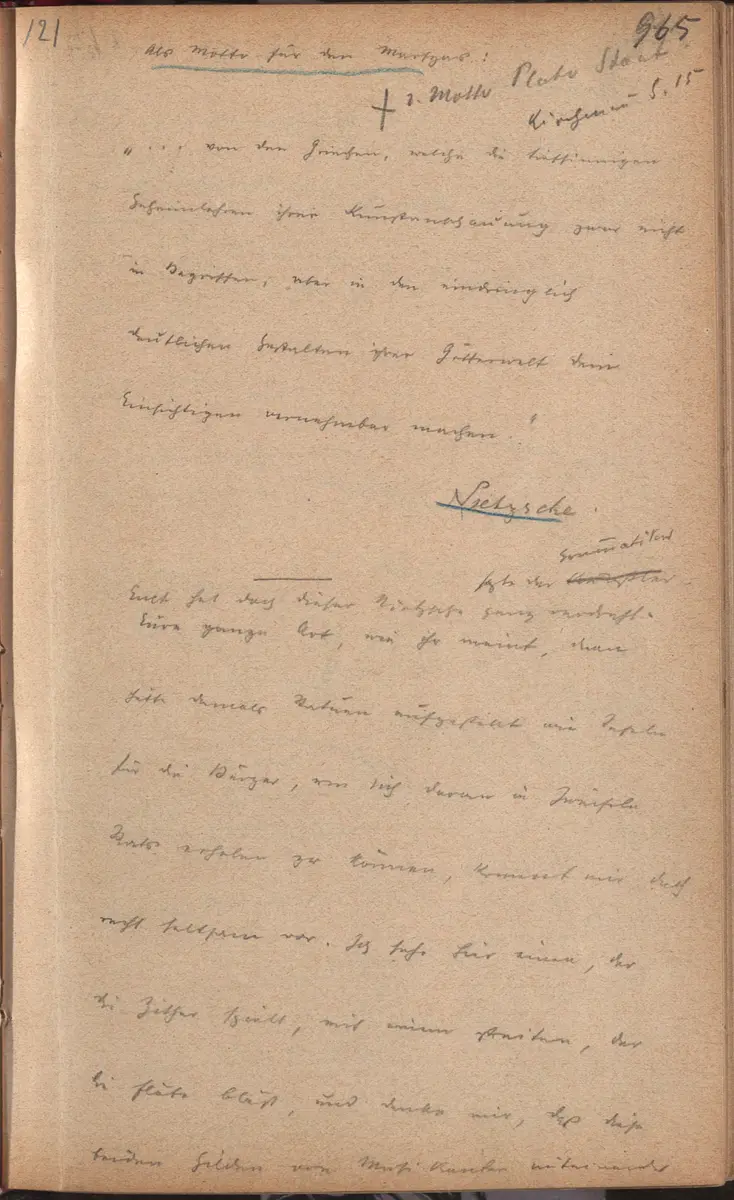 121
965
Als Motto für den Marsyas:
2. Motto Plato Staat
Kirchmann S. 15
"... von den Griechen, welche die tiefsinnigen
Geheimlehren ihrer Kunstanschauung zwar nicht
in Begriffen, aber in den eindringlich
deutlichen Gestalten ihrer Götterwelt dem
Einsichtigen vernehmbar machen."
Nietzsche.
Grammatiker
sagte der
Euch hat doch dieser Nietzsche ganz verdreht.
Eure ganze Art, wie ihr meint, man
hätte damals Statuen aufgestellt wie Tafeln
für die Bürger, um sich daran in Zweifeln
Rats erholen zu können, kommt mir doch
recht seltsam vor. Ich sehe hier einen, der
die Zither spielt, mit einem streiten, der
die Flöte bläst, und denke mir, daß diese
beiden Gilden von Musikanten miteinander